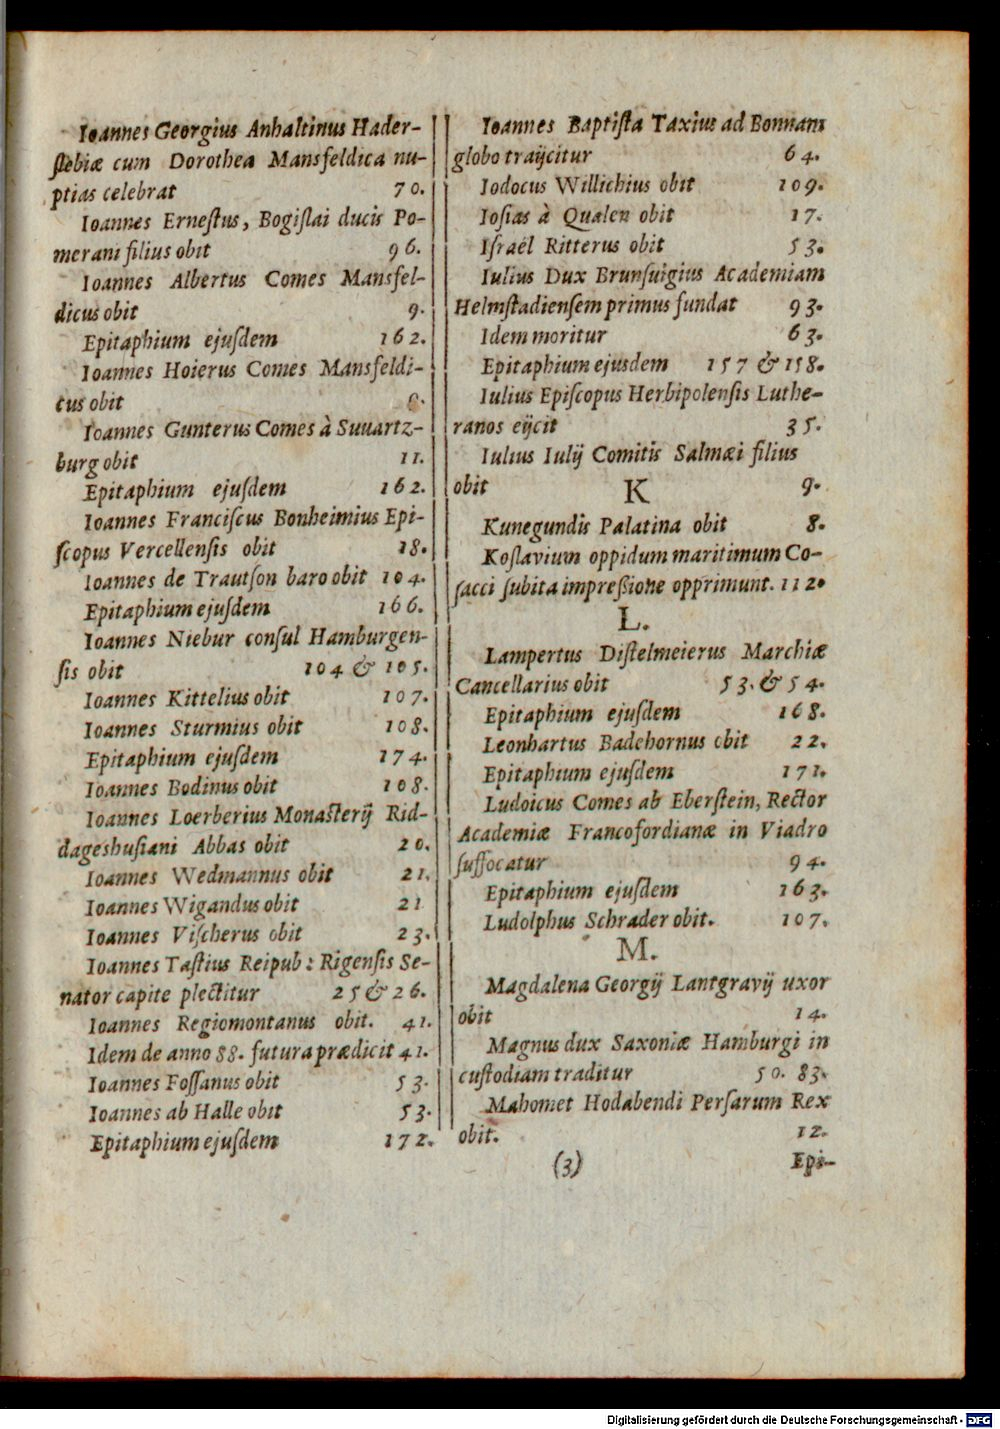 Ioannes Georgius Anhaltinus Hader-
ſlebiæ cum Dorothea Mansfeldica nu-
ptias celebrat 70.
Ioannes Erneſtus, Bogiſlai ducis Po-
merani filius obit 96.
Ioannes Albertus Comes Mansfel-
dicus obit 9.
Epitaphium ejuſdem 162.
Ioannes Hoierus Comes Mansfeldi-
cus obit
Ioannes Gunterus Comes à Suuartz-
burg obit 11.
Epitaphium ejuſdem 162.
Ioannes Franciſcus Bonheimius Epi-
ſcopus Vercellenſis obit 18.
Ioannes de Trautſon baro obit 104.
Epitaphium ejuſdem 166.
Ioannes Niebur conſul Hamburgen-
ſis obit 104 & 105.
Ioannes Kittelius obit 107.
Ioannes Sturmius obit 108.
Epitaphium ejuſdem 174.
Ioannes Bodinus obit 108.
Ioannes Loerberius Monaſterij Rid-
dageshuſiani Abbas obit 20.
Ioannes Wedmannus obit 21.
Ioannes Wigandus obit 21
Ioannes Viſcherus obit 23.
Ioannes Taſtius Reipub: Rigenſis Se-
nator capite plectitur 25 & 26.
Ioannes Regiomontanus obit. 41.
Idem de anno 88. futura prædicit 41.
Ioannes Foſſanus obit 53.
Ioannes ab Halle obit 53.
Epitaphium ejuſdem 172.
Ioannes Baptiſta Taxius ad Bonnam
globo traijcitur 64.
Iodocus Willichius obit 109.
Ioſias à Qualen obit 17.
Iſraël Ritterus obit 53.
Iulius Dux Brunſuigius Academiam
Helmſtadienſem primus fundat 93.
Idem moritur 63.
Epitaphium ejusdem 157 & 158.
Iulius Epiſcopus Herbipolenſis Luthe-
ranos eijcit 35.
Iulius Iulij Comitis Salmæi filius
obit 9.
K
Kunegundis Palatina obit 8.
Koſlavium oppidum maritimum Co-
ſacci ſubita impreſſione opprimunt. 112.
L.
Lampertus Diſtelmeierus Marchiæ
Cancellarius obit 53. & 54.
Epitaphium ejuſdem 168.
Leonhartus Badehornus obit 22.
Epitaphium ejuſdem 171.
Ludoicus Comes ab Eberſtein, Rector
Academiæ Francofordianæ in Viadro
ſuffocatur 94.
Epitaphium ejuſdem 163.
Ludolphus Schrader obit. 107.
M.
Magdalena Georgij Lantgravij uxor
obit 14.
Magnus dux Saxoniæ Hamburgi in
cuſtodiam traditur 50. 83.
Mahomet Hodabendi Perſarum Rex
obit. 12.
(3) Epi-
Digitalisierung gefördert durch die Deutsche Forschungsgemeinschaft - DFG